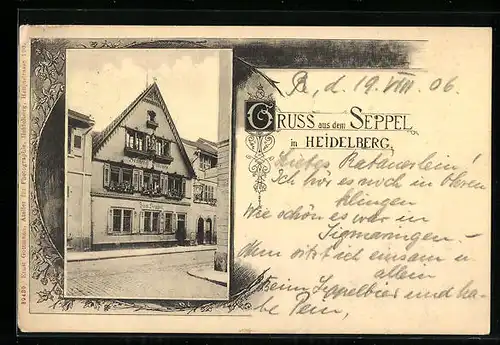 B, d. 19. VIII. 06
GRUSS aus dem SEPPEL
in HEIDELBERG.
Liebes
Ich hör es noch in Ohren
klingen
Wie schön es war in
Sigmaringen. –
Nun sitz ich einsam u
allein
Beim Seppelbier und ha-
be Pein,
Zum Seppel